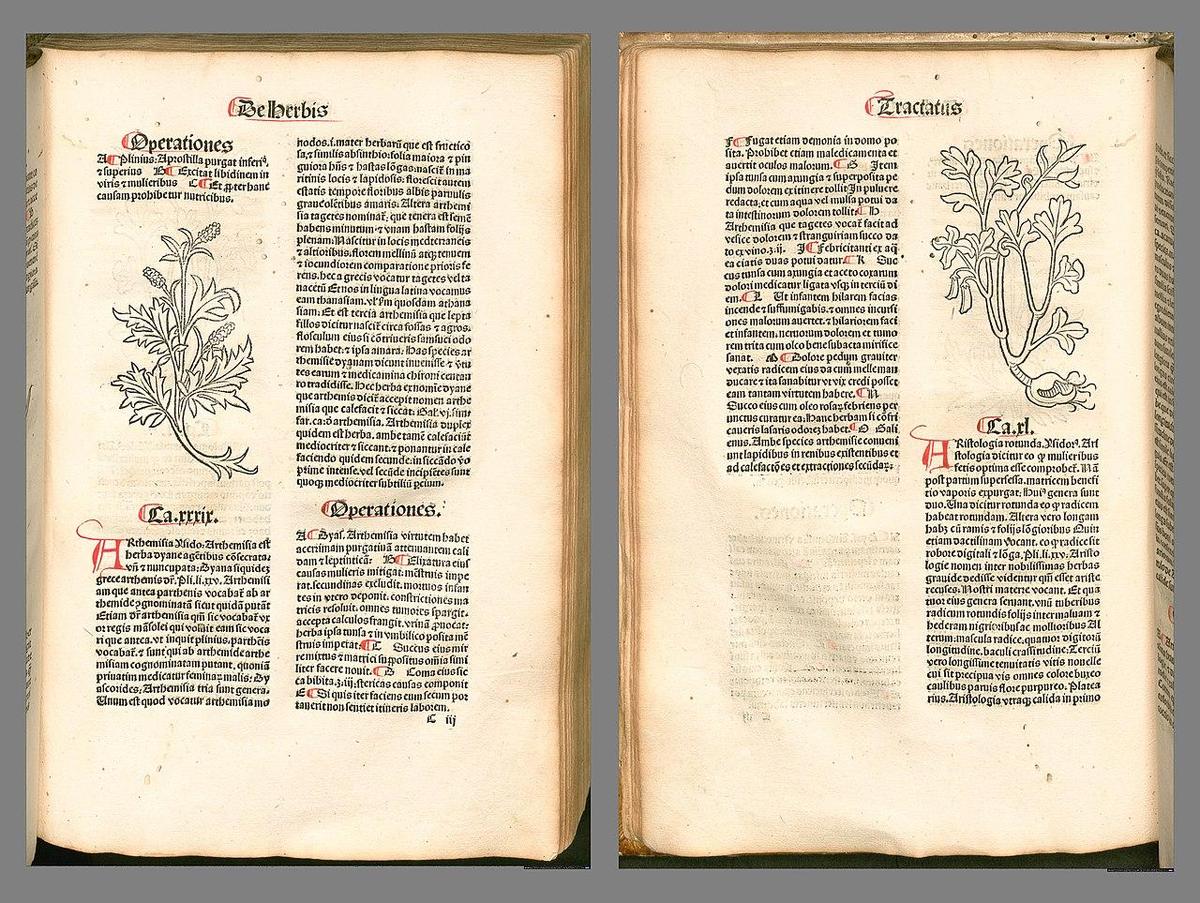 De Herbis
Operationes
A Plinius: Aprostilla purgat inferiꝰ,
⁊ superius B Excitat libidinem in
viris ⁊ mulieribus C Et ꝓter hanc
causam prohibetur nutricibus.
Ca.xxxix.
ARthemisia Ysido. Arthemisia est
herba dyane agētibus cōsecrata:
vñ ⁊ nuncupata: Dyana siquidez
grece arthemis dr̄. Pli.li.xxv. Arthemisi
am que antea parthenis vocabaĩ ab ar
themide ꝯgnominatā sicut quidā putāt
Etiam dr̄ arthemisia qm̄ sic vocabaĩ vx
or regis māsolei qui voluit eam sic voca
ri que antea. vt inquit plinius. parthēis
vocabaĩ. ⁊ sunt qui ab arthemide arthe
misiam cognominatam putant. quoniā
priuatim medicatur feminaꝝ malis: Dy
ascorides; Arthemisia tria sunt genera.
Unum est quod vocatur arthemisia mo
nodos.i.mater herbarū que est fruticō
sa,⁊ similis absinthio: folia maiora ⁊ pin
guiora hn̄s ⁊ hastas lōgas: nasciĩ in ma
ritinis locis ⁊ lapidosis: florescit autem
estatis tempore floribus albis paruulis
graueolētibus amaris. Altera arthemi
sia tagetes nominaĩ: que tenera est semē
habens minutum ⁊ vnam hastam folijs
plenam: Nascitur in locis mediterraneis
⁊ altioribus. florem mellinū atqꝫ tenuem
⁊ iocundiorem comparatione prioris fe
rens. hec a grecis vocatur tagetes vel ta
nacetū Et nos in lingua latina vocamus
eam thanasiam. vl'ꝑm quosdam athana
siam: Et est tercia arthemisia que lepta
fillos dicitur nasciĩ circa fossas ⁊ agros.
flosculum eius si cōtriueris samsuci odo
rem habet: ⁊ ipsa amara: Has species ar
themisie dyanam dicunt inuenisse ⁊ vir
tes earum ⁊ medicamina chironi centau
ro tradidisse. Hec herba ex nomīe dyane
que arthemis diciĩ accepit nomen arthe
misia que calefacit ⁊ siccat: Gal'.vj. sim
far.ca:ō arthemisia. Arthemisia duplex
quidem est herba. ambe tamē calefaciūt
mediocriter ⁊ siccant. ⁊ ponantur in cale
faciendo quidem secunde: in siccādo v̄o
prime intense. vel secunde incipiētes sunt
quoqꝫ mediocriter subtiliū ꝑcium.
Operationes.
A Dyas. Arthemisia virtutem habet
acerrimam purgatiuā attenuantem cali
dam ⁊ leptinticā: B Elixatura eius
causas mulieris mitigat: mēstruis impe
rat. secundinas excludit. mortuos infan
tes in vtero deponit. constrictiones ma
tricis resoluit. omnes tumores spargit.
accepta calculos frangit. vrinā ꝓuocat:
herba ipsa tunsa ⁊ in vmbilico posita mē
struis imperat: C Succus eius mir
re mixtus ⁊ matrici suppositus om̄ia simi
liter facere nouit. D Coma eius sic
ca bibita.ʒ.iij. stericas causas componit
E Si quis iter faciens eum secum por
tauerit non sentiet itineris laborem.
C iij
Tractatus
F Fugat etiam demonia in domo po
sita. Prohibet etiam maledicamenta et
auertit oculos malorum. G Item
ipsa tunsa cum axungia ⁊ superposita pe
dum dolorem ex itinere tollit: In puluere
redacta, et cum aqua vel mulsa potui da
ta intestinorum dolorem tollit. H
Arthemisia que tagetes vocaĩ facit ad
vesice dolorem ⁊ stranguiriam succo da
to ex vino.ʒ.ij. I Febricitanti ex aq̄
ea ciatis duas potui datur. K Suc
cus tunsa cum axungia et aceto coxarum
dolori medicatur ligata vsqꝫ in terciū di
em. L Ut infantem hilarem facias
incende ⁊ suffumigabis. ⁊ omnes incursi
ones malorum auertet. ⁊ hilariorem faci
et infantem. neruorum dolorem et tumo
rem trita cum oleo bene subacta mirifice
sanat. M Dolore pedum grauiter
vexatis radicem eius da cum melle man
ducare ⁊ ita sanabitur vt vix credi posset
eam tantam virtutem habere. N
Succo eius cum oleo rosaꝝ febriens per
unctus curatur ea: Hanc herbam si confri
caueris lasaris odorem habet. O Gali
enus. Ambe species arthemisie conueni
unt lapidibus in renibus existentibus et
ad calefactōes et extractiones secūdaꝝ:
Ca.xl.
ARistologia rotunda. Ysidorꝰ. Ari
stologia dicitur eo ꝙ mulieribus
fetis optima esse comprobeĩ. Nā
post partum superfessa. matricem benefi
tio vaporis expurgat: Huiꝰ genera sunt
duo. Una dicitur rotunda eo ꝙ radicem
habeat rotundam. Altera vero longam
habꝫ cū ramis ⁊ folijs lōgioribus Quin
etiam dactilinam vocant. eo ꝙ radice sit
robore digitali ⁊ lōga. Pli.li.xv. Aristo
logie nomen inter nobilissimas herbas
grauide dedisse videntur qm̄ esset ariste
receses: Nostri matere vocant. Et qua
tuor eius genera seruant. vnū tuberibus
radicum rotundis folijs inter maluam ⁊
hederam nigrioribus ac mollioribus Al
terum: mascula radice. quatuor digitorū
longitudine. baculi crassitudine: Terciū
vero longissime tenuitatis vitis nouelle
cui sit precipua vis omnes colore buxeo
caulibus paruis flore purpureo. Platea
rius. Aristologia vtraqꝫ calida in primo